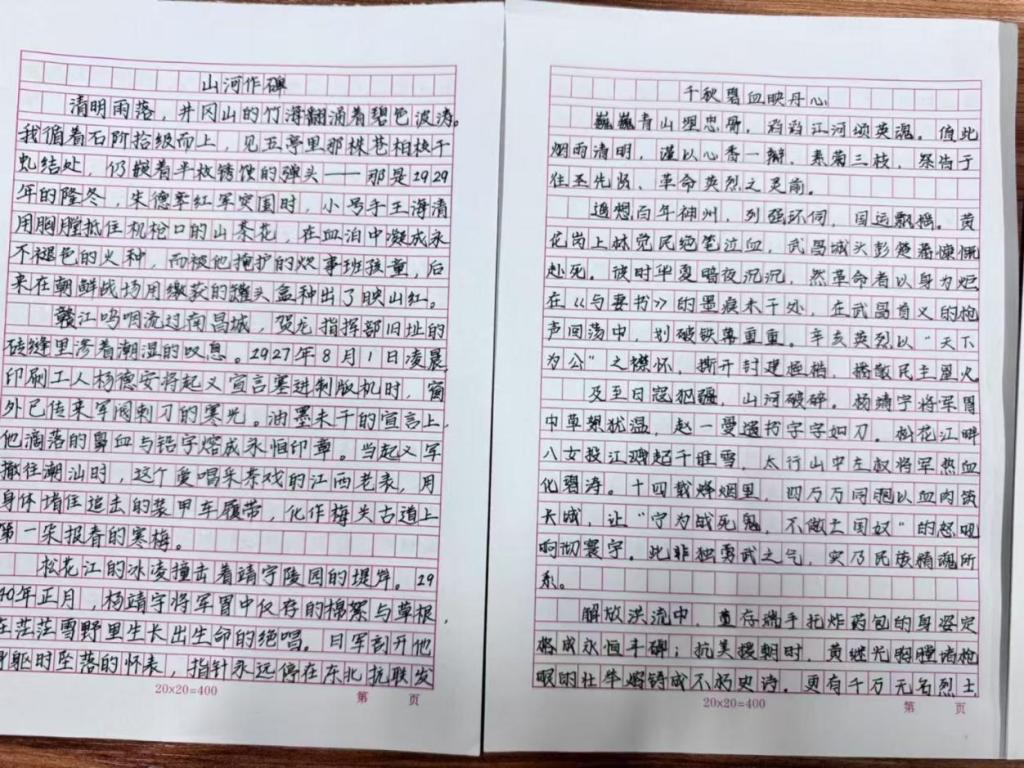 山河作碑
清明雨落，井冈山的竹海翻涌着碧色波涛。
我循着石阶拾级而上，见五亭里那株苍柏枝干
虬结处，仍嵌着半枚锈蚀的弹头——那是1929
年的隆冬，朱德率红军突围时，小号手王海清
用胸膛抵住机枪口的山茶花，在血泊中凝成永
不褪色的火种，而被他掩护的炊事班孩童，后
来在朝鲜战场用缴获的罐头盒种出了映山红。
赣江呜咽流过南昌城，贺龙指挥部旧址的
砖缝里渗着潮湿的叹息。1927年8月1日凌晨
印刷工人杨德安将起义宣言塞进制版机时，窗
外已传来军阀刺刀的寒光。油墨未干的宣言上，
他滴落的鼻血与铅字熔成永恒印章。当起义军
撤往潮汕时，这个爱唱采茶戏的江西老表，用
身体堵住追击的装甲车履带，化作梅关古道上
第一朵报春的寒梅。
松花江的冰凌撞击着靖宇陵园的堤岸。19
40年正月，杨靖宇将军胃中仅存的棉絮与草根，
在茫茫雪野里生长出生命的绝唱。日军剖开他
身躯时坠落的怀表，指针永远停在东北抗联发
20×20=400
第 页
千秋碧血映丹心
巍巍青山埋忠骨，滔滔江河颂英魂。值此
烟雨清明，谨以心香一瓣，素菊三枝，祭告于
往圣先贤、革命英烈之灵前。
遥想百年神州，列强环伺，国运飘摇。黄
花岗上林觉民绝笔泣血，武昌城头彭楚藩慷慨
赴死。彼时华夏暗夜沉沉，然革命者以身为炬
在《与妻书》的墨痕未干处，在武昌首义的枪
声回荡中，划破铁幕重重。辛亥英烈以“天下
为公”之襟怀，撕开封建桎梏，播散民主星火
及至日寇犯疆，山河破碎。杨靖宇将军胃
中草絮犹温，赵一曼遗书字字如刀。松花江畔
八女投江溅起千堆雪，太行山中左权将军热血
化碧涛。十四载烽烟里，四万万同胞以血肉筑
长城，让“宁为战死鬼，不做亡国奴”的怒吼
响彻寰宇。此非独勇武之气，实乃民族精魂所
系。
解放洪流中，董存瑞手托炸药包的身姿定
格成永恒丰碑；抗美援朝时，黄继光胸膛堵枪
眼的壮举熔铸成不朽史诗。更有千万无名烈士
20×20=400
第 页